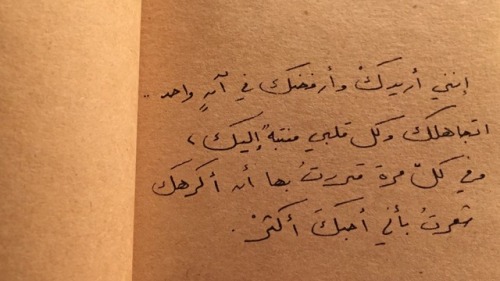 إنني أريدكَ وأرفضك في آنٍ واحد ..
اتجاهلك وكل قلبي منتبهٌ إليك ،
وفي كلّ مرة قررتُ بها أن أكرهك
شعرتُ بأني أحبكَ أكثرْ .